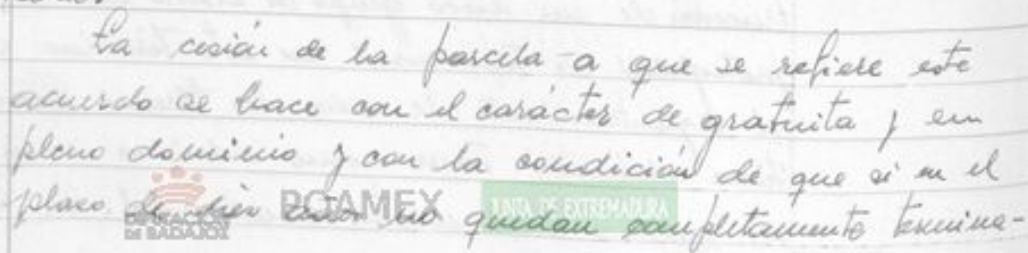 La cesión de la parcela a que se refiere este
acuerdo se hace con el carácter de gratuita y en
pleno dominio y con la condición de que si en el
plazo de diez años no quedan completamente termina-
DIPUTACIÓN DE BADAJOZ PCAMEX JUNTA DE EXTREMADURA